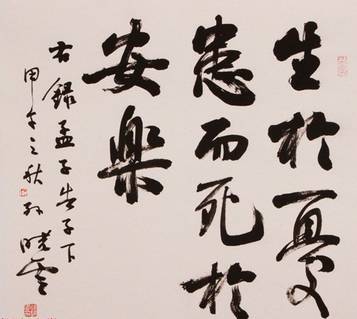 生於憂
患而死於
安樂
右錄孟子告子下
甲午之秋孫曉雲